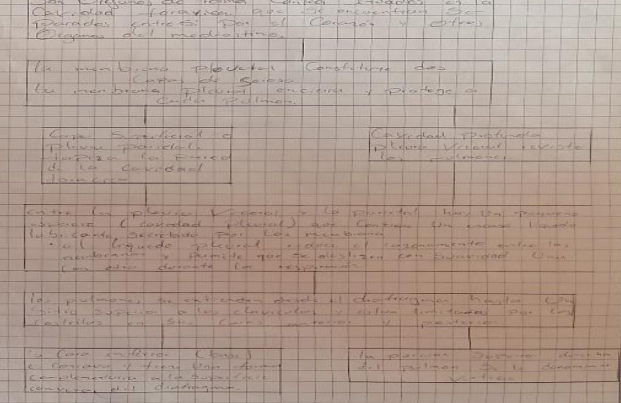 Cavidad torácica que se encuentran Se-
parados entre Si por el Corazón y otros
Organos del mediastino.
la membrana pleural Constituye dos
Capas de Serosa
la membrana pleural encierra y protege a
Cada Pulmon
Capa Superficial o
pleura parietal.
tapiza la Pared
de la Cavidad
toracica
Cavidad Profunda
pleura Visceral reviste
los pulmones
entre la pleura Visceral y la parietal hay Un pequeño
(cavidad pleural) que Contiene Un liquido
lubricante Secretado Por las membrana
• el liquido pleural reduce el rozamiento entre las
membranas y permite que se deslicen con Suavidad Una
Con otra durante la respiración
los pulmones se extienden desde el diafragma hasta Un
Sitio Superior a las claviculas y estan limitados por las
Costillas en Sus Caras anterior y posterior
Cara inferior (base)
Concava y tiene Una forma
complementaria a la Superficie
convexa del diafragma
la porcion Superior
del pulmon Se le denomina
Vertice